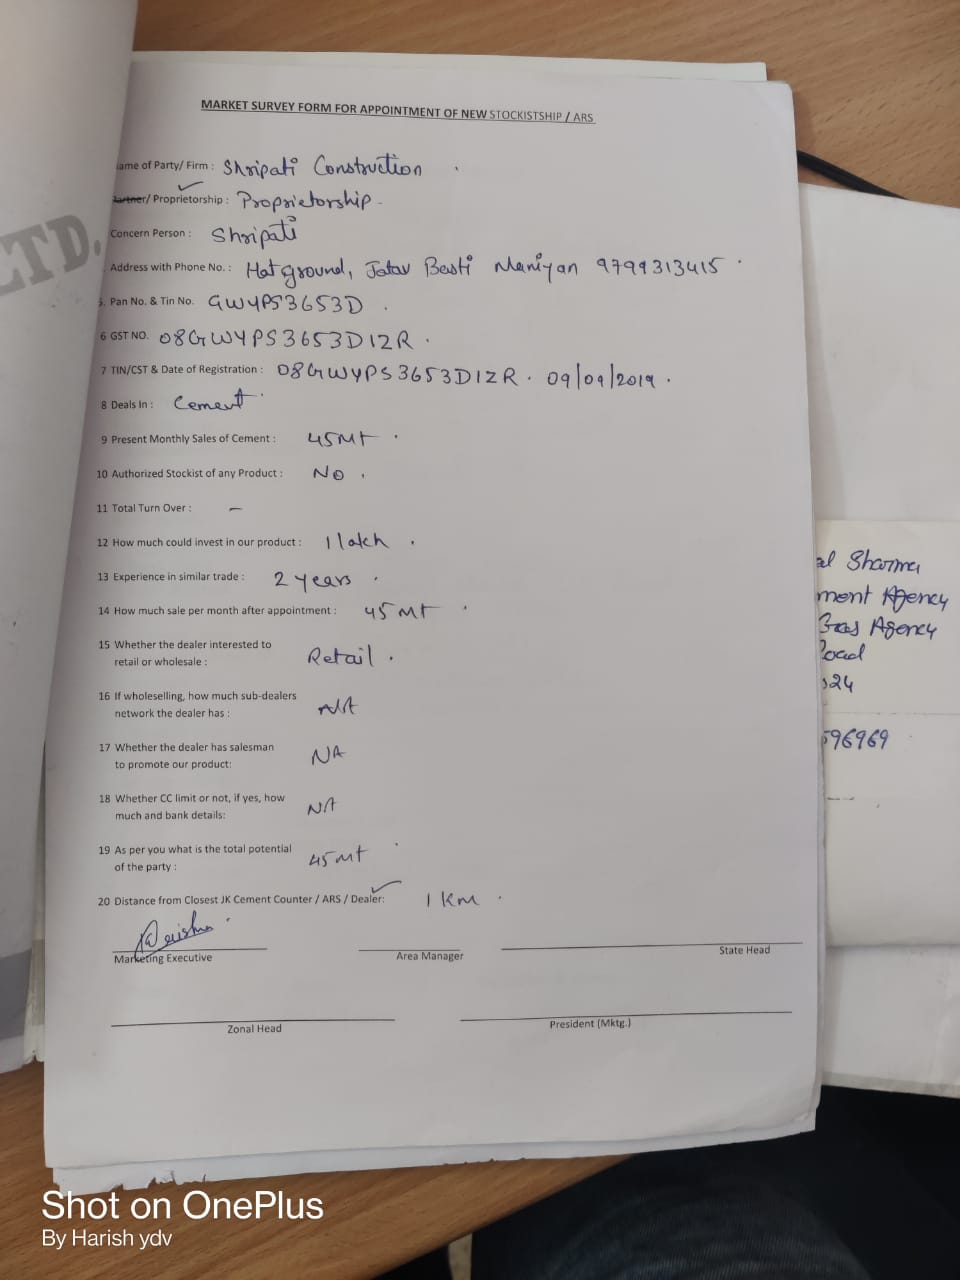 LTD.
MARKET SURVEY FORM FOR APPOINTMENT OF NEW STOCKISTSHIP / ARS
ame of Party/ Firm : Shripati Construction .
Partner/ Proprietorship : Proprietorship -
Concern Person : Shripati
Address with Phone No. : Hat ground, Jatav Basti Maniyan 9799313415
5. Pan No. & Tin No. GWYPS3653D .
6 GST NO. 08GWYPS3653D1ZR .
7 TIN/CST & Date of Registration : 08GWYPS3653D1ZR . 09/09/2019 .
8 Deals In : Cement
9 Present Monthly Sales of Cement : 45Mt .
10 Authorized Stockist of any Product : No .
11 Total Turn Over : -
12 How much could invest in our product : 1 lakh .
13 Experience in similar trade : 2 years .
14 How much sale per month after appointment : 45 Mt .
15 Whether the dealer interested to
retail or wholesale : Retail .
16 If wholeselling, how much sub-dealers
network the dealer has : NA
17 Whether the dealer has salesman
to promote our product: NA
18 Whether CC limit or not, if yes, how
much and bank details: NA
19 As per you what is the total potential
of the party : 45 Mt
20 Distance from Closest JK Cement Counter / ARS / Dealer: 1 Km .
Marketing Executive
Area Manager
State Head
Zonal Head
President (Mktg.)
al Sharma
ment Agency
Gas Agency
Road
24
596969
Shot on OnePlus
By Harish ydv